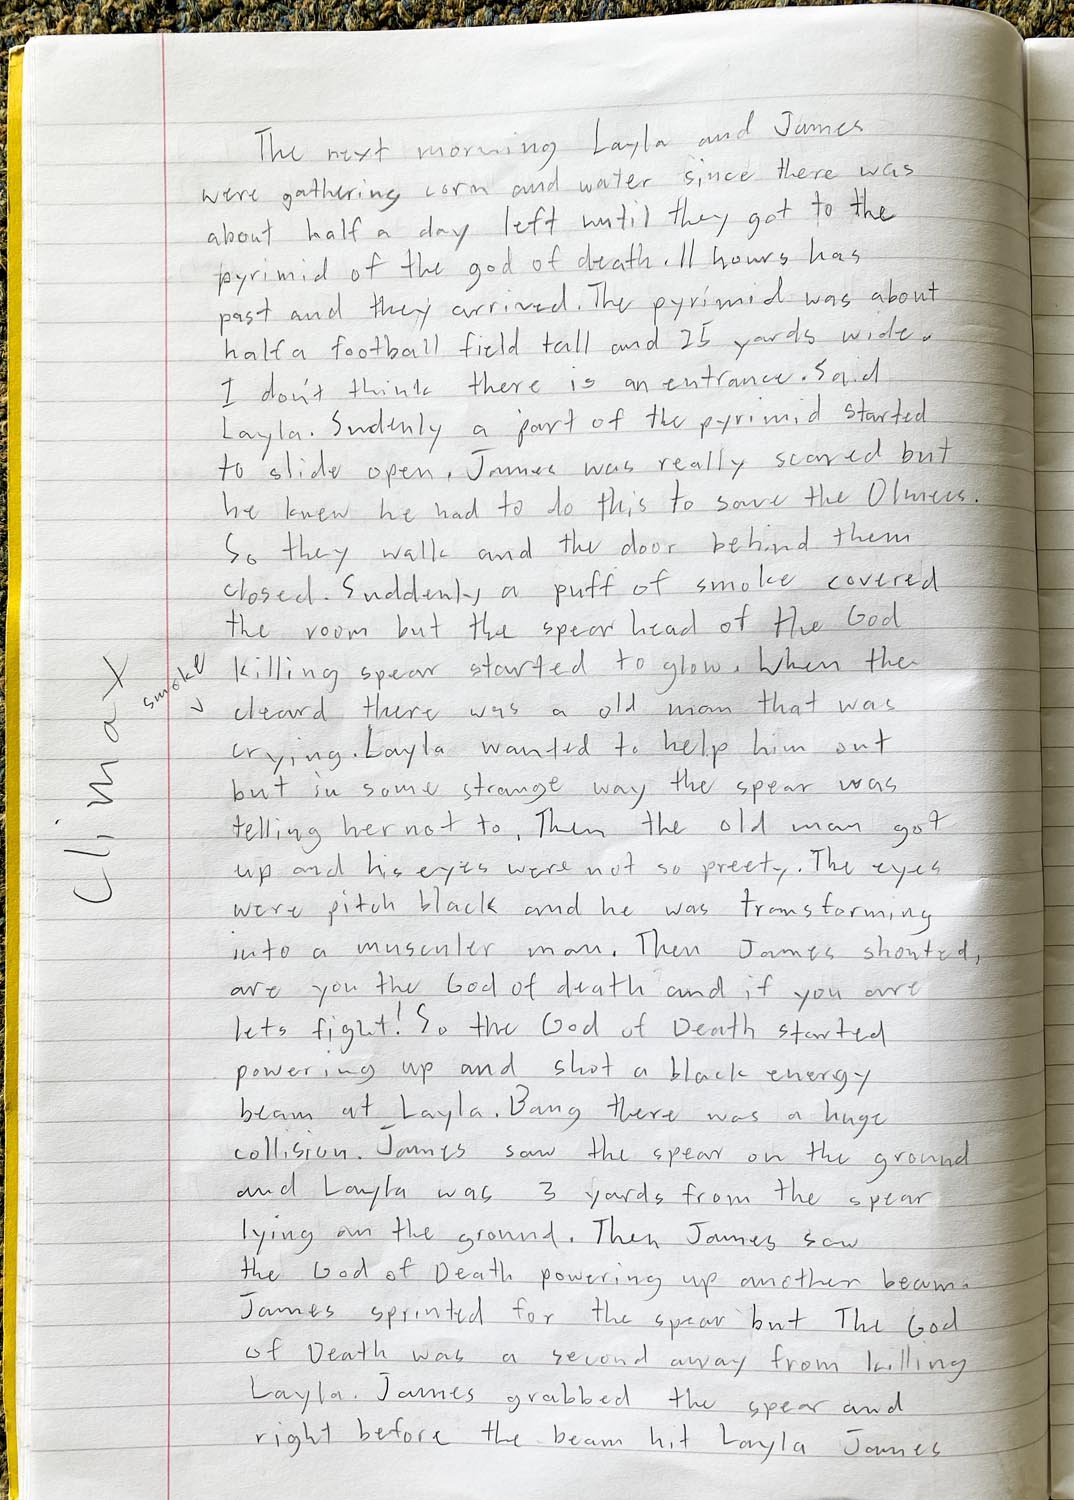 The next morning Layla and James
were gathering corn and water since there was
about half a day left until they got to the
pyrimid of the god of death. 11 hours has
past and they arrived. The pyrimid was about
half a football field tall and 25 yards wide.
I don't think there is an entrance. Said
Layla. Sudenly a part of the pyrimid started
to slide open. James was really scared but
he knew he had to do this to save the Olmecs.
So they walk and the door behind them
closed. Suddenly a puff of smoke covered
the room but the spear head of the God
killing spear started to glow. When the
smoke
cleard there was a old man that was
crying. Layla wanted to help him out
but in some strange way the spear was
telling her not to. Then the old man got
up and his eyes were not so preety. The eyes
were pitch black and he was transforming
into a musculer man. Then James shouted,
are you the God of death and if you are
lets fight! So the God of Death started
powering up and shot a black energy
beam at Layla. Bang there was a huge
collision. James saw the spear on the ground
and Layla was 3 yards from the spear
lying on the ground. Then James saw
the God of Death powering up another beam.
James sprinted for the spear but The God
of Death was a second away from killing
Layla. James grabbed the spear and
right before the beam hit Layla James
Climax